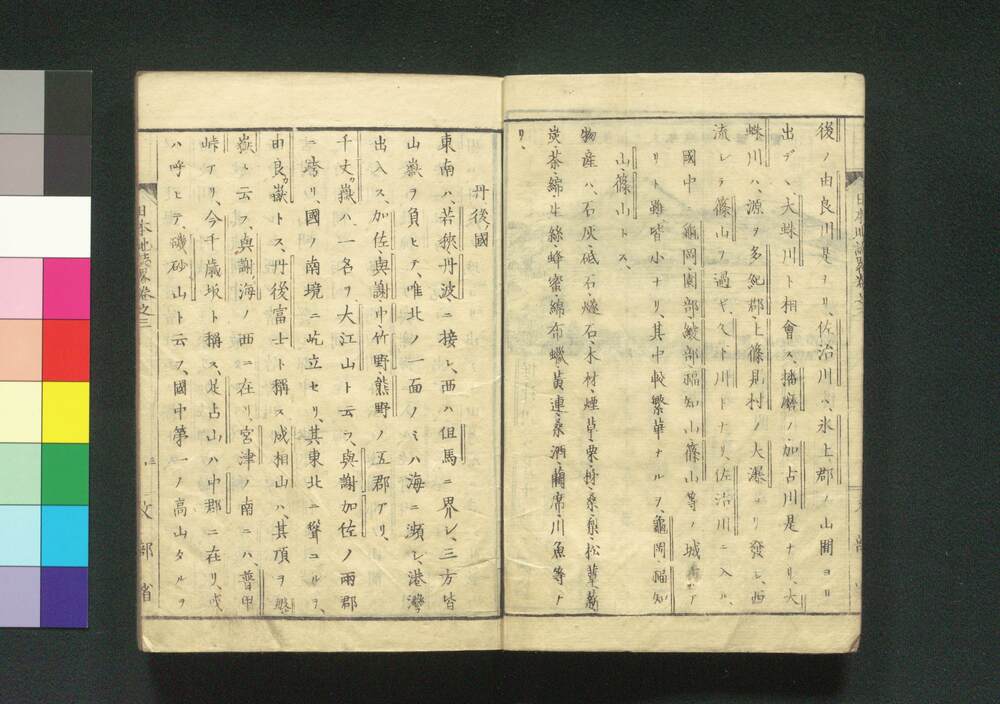 後ノ由良川是ナリ、佐治川ハ、氷上郡ノ山間ヨリ
出デ、大蛛川ト相會ス、播磨ノ加古川是ナリ、大
蛛川ハ、源ヲ多紀郡上篠見村ノ大瀑ヨリ發シ、西
流シテ篠山ヲ過ギ、久下川トナリ、佐治川ニ入ル、
國中ニ龜岡、園部、綾部、福知山、篠山等ノ城市ア
リト雖皆小ナリ、其中較繁華ナルヲ、龜岡、福知
山、篠山トス、
物產ハ、石灰、砥石、燧石、木材、煙草、栗、材、桑、松蕈、薪
炭、茶、綿、生絲、蜂蜜、綿布、蠟、黃連、桑酒、藺席、川魚等ナ
リ、
丹後國
東南ハ、若狹、丹波ニ接シ、西ハ但馬ニ界シ、三方皆
山嶽ヲ負ヒテ、唯北ノ一面ノミハ海ニ瀕シ港灣
出入ス、加佐、與謝、中、竹野、熊野ノ五郡アリ、
千丈ガ嶽ハ、一名ヲ、大江山ト云フ、與謝加佐ノ兩郡
ニ跨リ、國ノ南境ニ屹立セリ、其東北ニ聳ユルヲ、
由良ガ嶽トス、丹後富士ト稱ス成相山ハ、其頂ヲ
嶽ト云フ、與謝ノ海ノ西ニ在リ、宮津ノ南ニハ、普甲
峠アリ、今千歲坂ト稱ス、是占山ハ中郡ニ在リ、或
ハ呼ビテ、磯砂山ト云フ、國中第一ノ高山タルヲ
日本地誌略卷之三
文部省